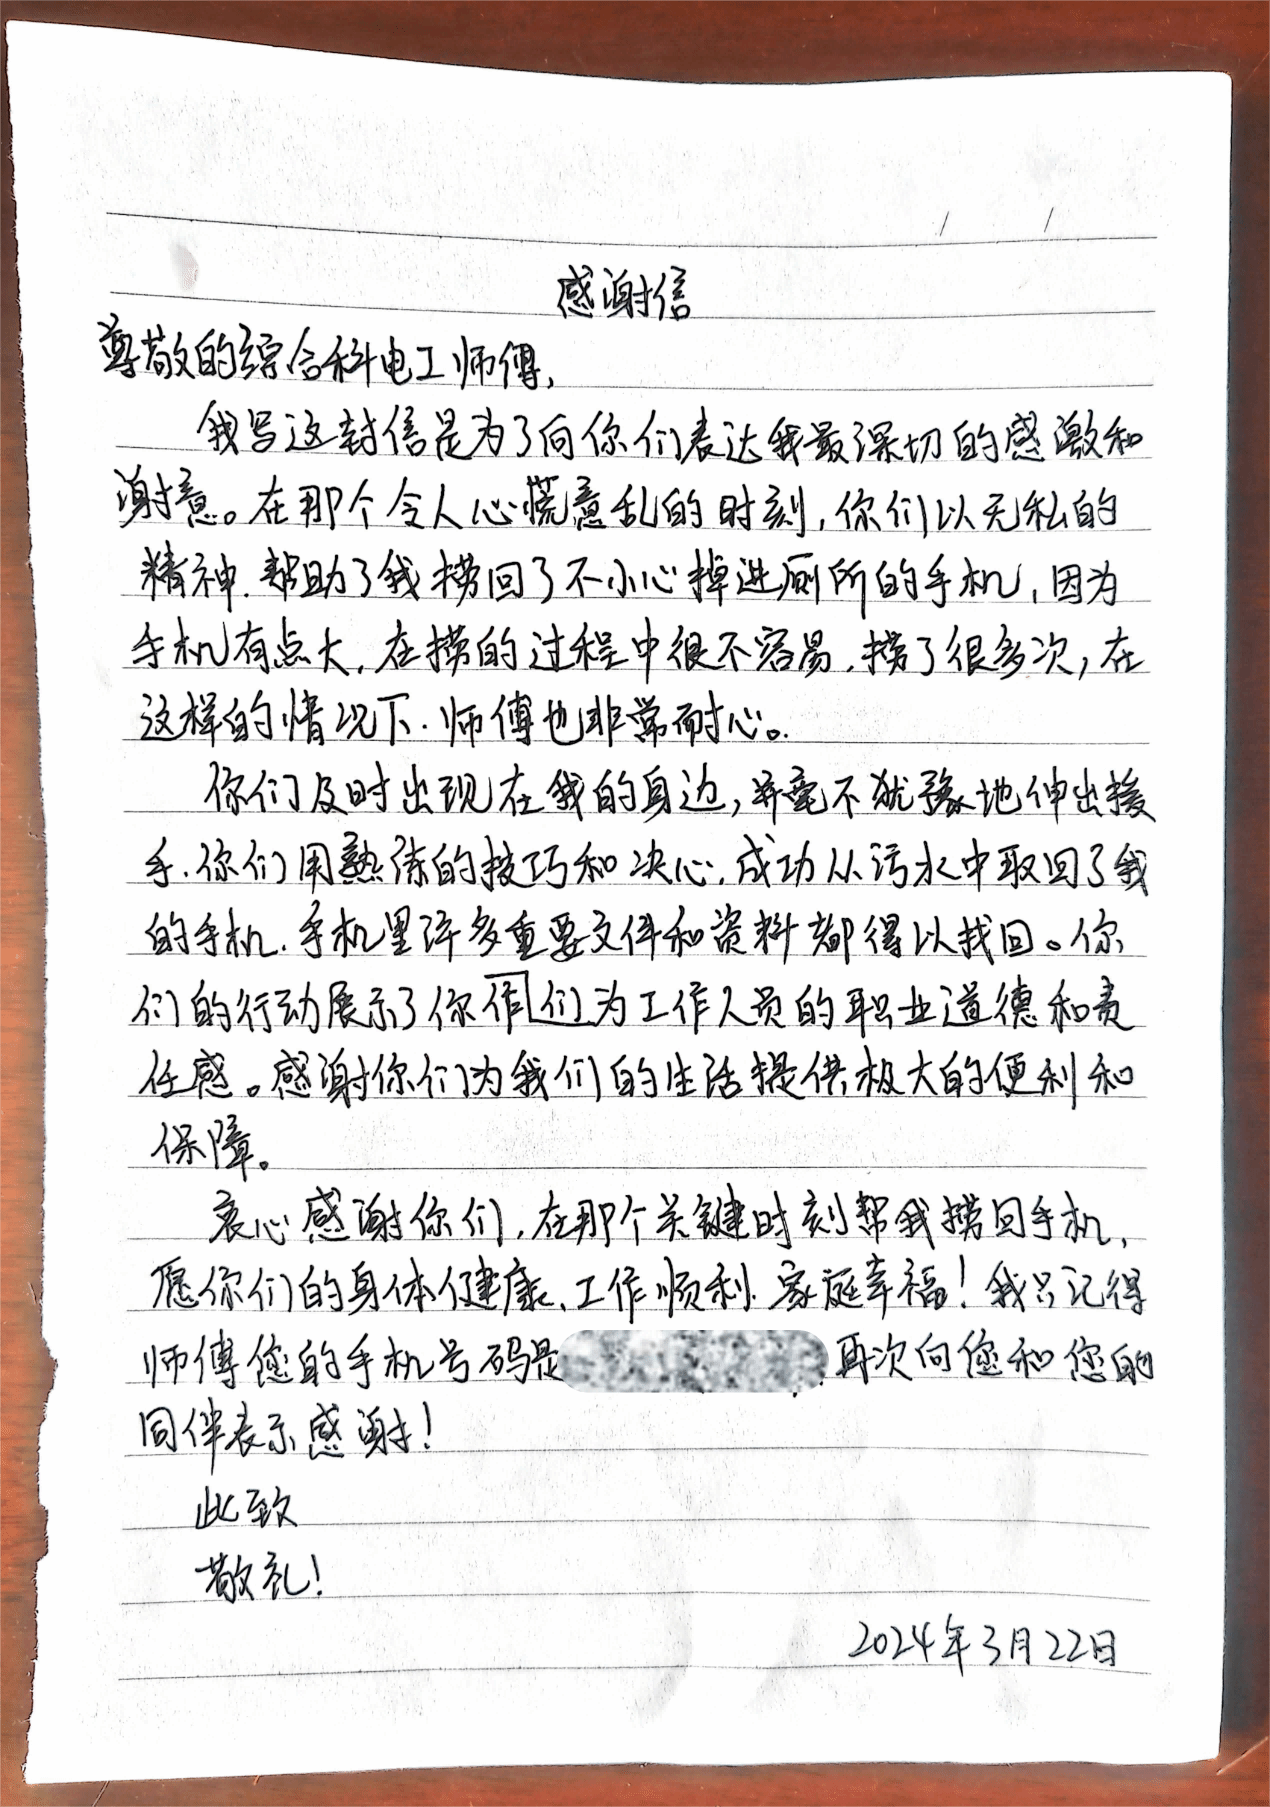 感谢信
尊敬的综合科电工师傅,
我写这封信是为了向你们表达我最深切的感激和
谢意。在那个令人心慌意乱的时刻,你们以无私的
精神.帮助了我捞回了不小心掉进厕所的手机,因为
手机有点大,在捞的过程中很不容易,捞了很多次,在
这样的情况下.师傅也非常耐心。
你们及时出现在我的身边,并毫不犹豫地伸出援
手.你们用熟练的技巧和决心,成功从污水中取回了我
的手机.手机里许多重要文件和资料都得以找回。你
们的行动展示了你作们为工作人员的职业道德和责
任感。感谢你们为我们的生活提供极大的便利和
保障。
衷心感谢你们,在那个关键时刻帮我捞回手机,
愿你们的身体健康、工作顺利.家庭幸福!我只记得
师傅您的手机号码是 再次向您和您的
同伴表示感谢!
此致
敬礼!
2024年3月22日